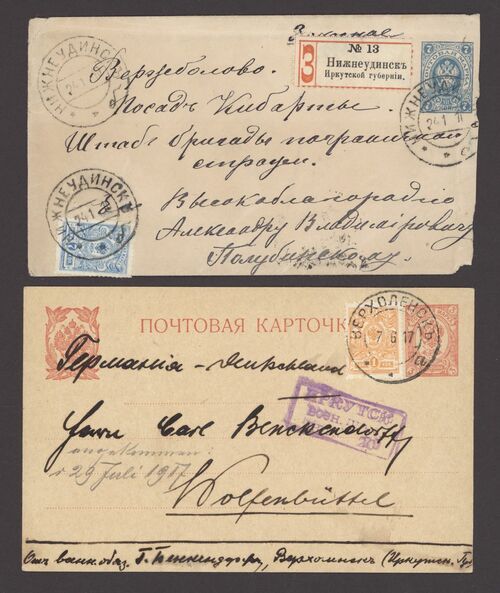 НИЖНЕУДИНСКЪ
24 1
Заказное
З
№ 13
Нижнеудинскъ
Иркутской губерніи.
7
7
НИЖНЕУДИНСКЪ
24 1
Вержболово.
Посадъ Кибарты.
Штабъ бригады пограничной
стражи.
Высокоблагородію
Александру Владиміровичу
Полубинскому
НИЖНЕУДИНСКЪ
24 1
ПОЧТОВАЯ КАРТОЧК
ВЕРХОЛЕНСКЪ
7 6 17
а
1
Германія - Deutschland
ИРКУТСК
ВОЕН.
Herrn Carl Benckendorff
angekommen:
29 Juli 1917
Wolfenbüttel
Отъ воен. обяз. Г. Бенкендорфъ, Верхоленскъ (Иркутск. Губ